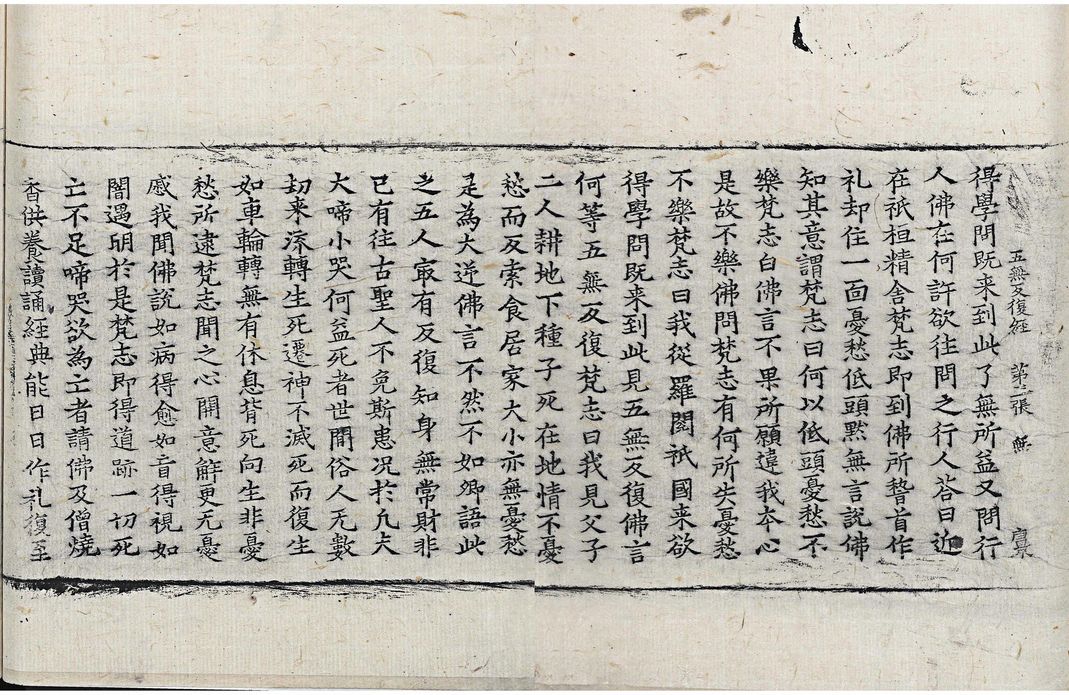 五無反復經 第二張
得學問既来到此了無所益又問行
人佛在何許欲往問之行人荅曰近
在祇桓精舍梵志即到佛所稽首作
礼却住一面憂愁低頭黙無言說佛
知其意謂梵志曰何以低頭憂愁不
樂梵志白佛言不果所願違我本心
是故不樂佛問梵志有何所失憂愁
不樂梵志曰我從羅閱祇國来欲
得學問既来到此見五無反復佛言
何等五無反復梵志曰我見父子
二人耕地下種子死在地情不憂
愁而反索食居家大小亦無憂愁
是為大逆佛言不然不如卿語此
之五人冣有反復知身無常財非
已有往古聖人不免斯患况於凡夫
大啼小哭何益死者世間俗人无數
劫来流轉生死遷神不滅死而復生
如車輪轉無有休息背死向生非憂
愁所逮梵志聞之心開意解更无憂
慼我聞佛說如病得愈如盲得視如
闇遇明於是梵志即得道跡一切死
亡不足啼哭欲為亡者請佛及僧燒
香供養讀誦經典能日日作礼復至